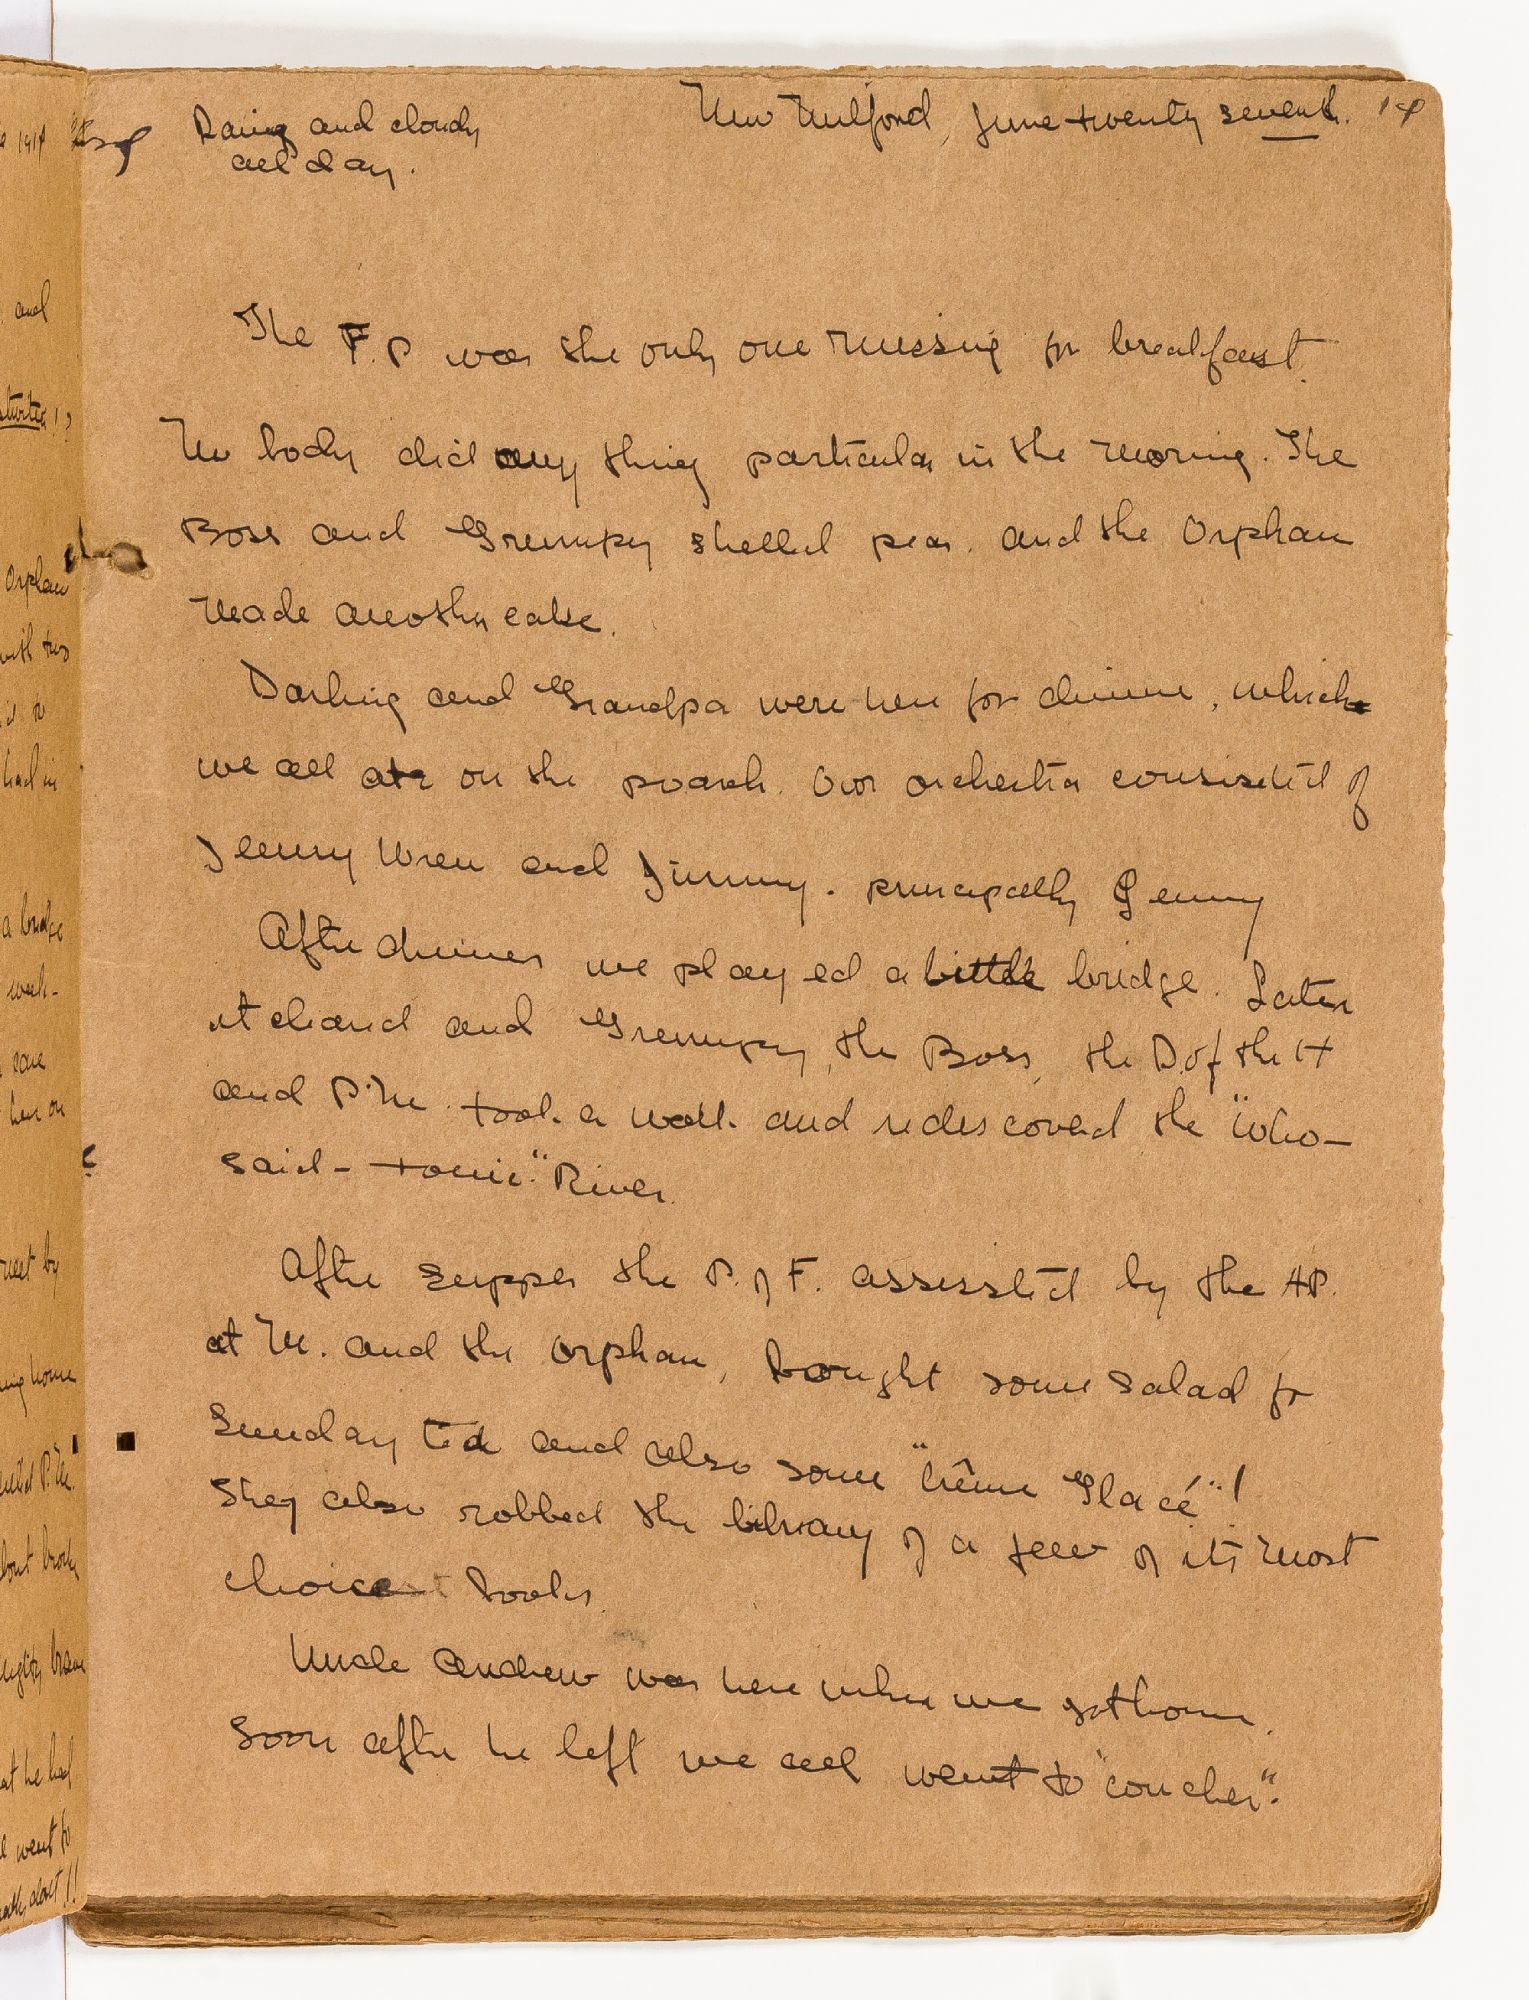 Rainy and cloudy
all day.
New Milford, June twenty seventh. 14
The F.P was the only one missing for breakfast.
No body did any thing particular in the morning. The
Boss and Grumpy shelled peas. and the Orphan
made another cake.
Darling and Grandpa were here for dinner, which
we all ate on the poarch. Our orchestra consisted of
Jenny Wren and Jimmy. principally Jenny
After dinner we played a little bridge. Later
it cleared and Grumpy, the Boss, the D. of the H
and P.M. took a walk and rediscoverd the "Who-
said-tonic" River.
After supper the P. of F. assessted by the A.P.
at M. and the Orphan, bought some salad for
Sunday tea and also some "Crême Glacé"!
They also robbed the library of a few of its most
choicest books.
Uncle Andrew was here when we got home.
Soon after he left we all went to "coucher".
and
Orphan
with two
had in
a bridge
week-
here on
by
home
P.M.
at he had
went to